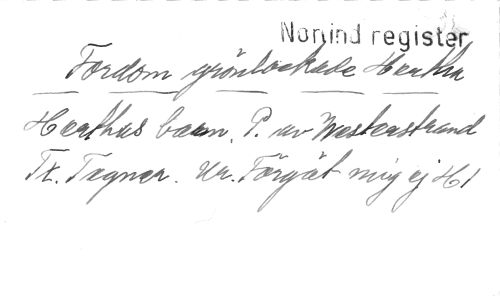 Nonind register
Fordom grönlockade Hertha
Herthas barn. P. av Westerstrand
Tx. Tegner. Ur. Förgät mig ej H1